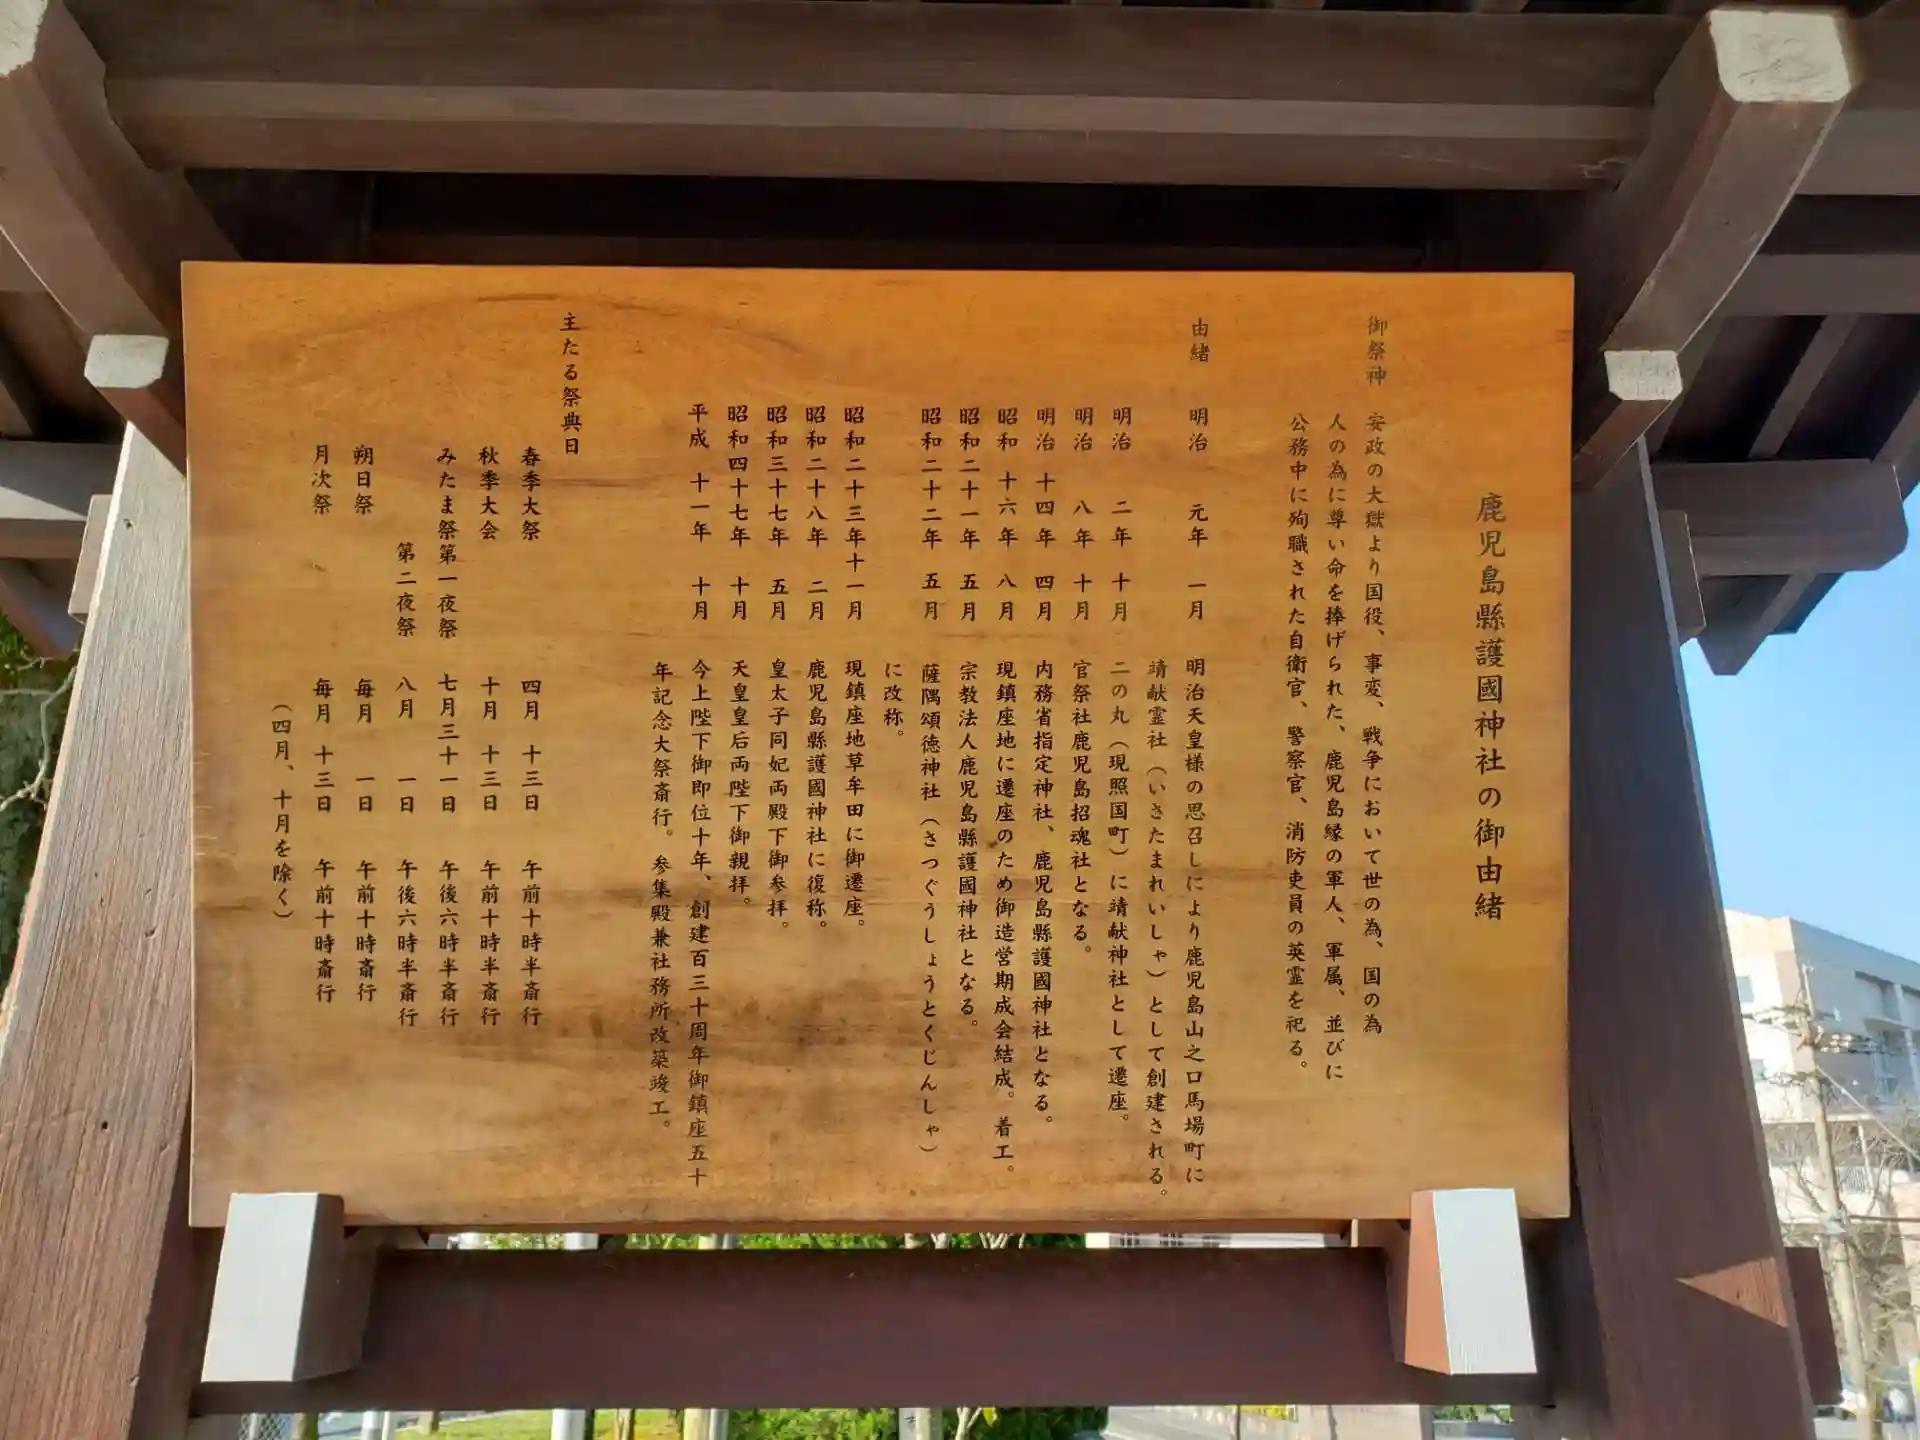 鹿児島縣護國神社の御由緒
御祭神 安政の大獄より国役、事変、戦争において世の為、国の為
人の為に尊い命を捧げられた、鹿児島縁の軍人、軍属、並びに
公務中に殉職された自衛官、警察官、消防吏員の英霊を祀る。
由緒 明治 元年 一月 明治天皇様の思召しにより鹿児島山之口馬場町に
靖献霊社（いさたまれいしゃ）として創建される。
明治 二年 十月 二の丸（現照国町）に靖献神社として遷座。
明治 八年 十月 官祭社鹿児島招魂社となる。
明治 十四年 四月 内務省指定神社、鹿児島縣護國神社となる。
昭和 十六年 八月 現鎮座地に遷座のため御造営期成会結成。着工。
昭和二十一年 五月 宗教法人鹿児島縣護國神社となる。
昭和二十二年 五月 薩隅頌徳神社（さつぐうしょうとくじんしゃ）
に改称。
昭和二十三年十一月 現鎮座地草牟田に御遷座。
昭和二十八年 二月 鹿児島縣護國神社に復称。
昭和三十七年 五月 皇太子同妃両殿下御参拝。
昭和四十七年 十月 天皇皇后両陛下御親拝。
平成 十一年 十月 今上陛下御即位十年、創建百三十周年御鎮座五十
年記念大祭斎行。参集殿兼社務所改築竣工。
主たる祭典日
春季大祭 四月 十三日 午前十時半斎行
秋季大会 十月 十三日 午前十時半斎行
みたま祭第一夜祭 七月三十一日 午後六時半斎行
第二夜祭 八月 一日 午後六時半斎行
朔日祭 毎月 一日 午前十時斎行
月次祭 毎月 十三日 午前十時斎行
（四月、十月を除く）